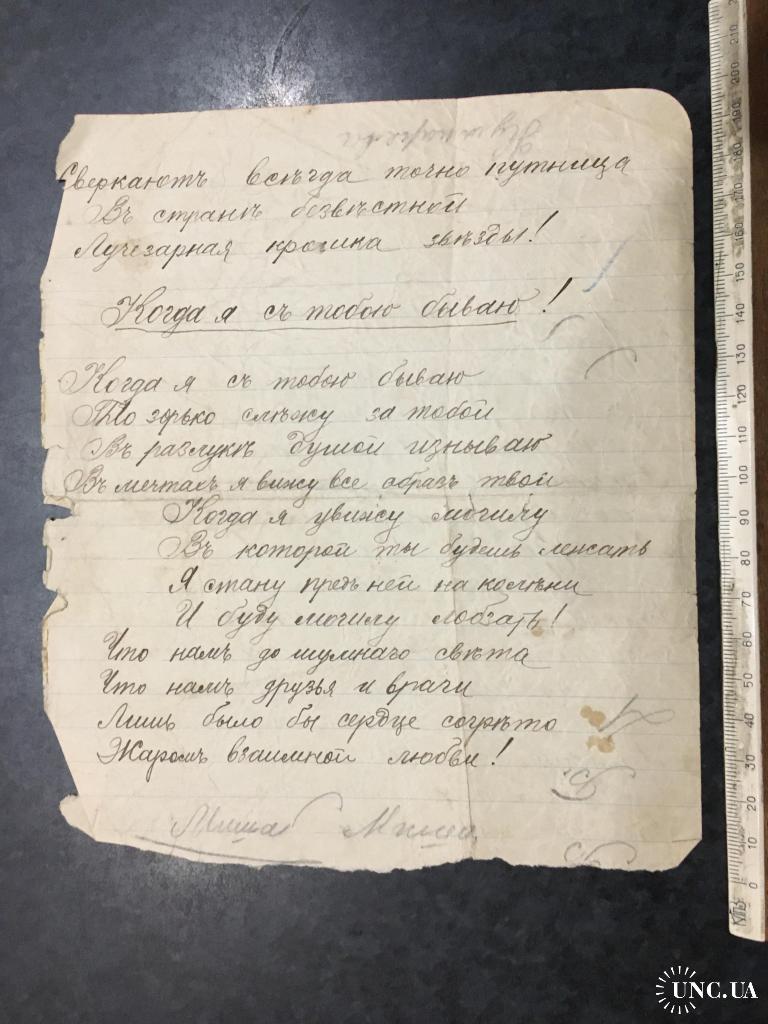 Сверкаютъ всѣгда точно путница
Въ странѣ безвѣстной
Лучезарная крошка звѣзды!
Когда я съ тобою бываю!
Когда я съ тобою бываю
То зорько слѣжу за тобой
Въ разлукѣ душой изнываю
Въ мечтахъ я вижу все образъ твой
Когда я увижу могилу
Въ которой ты будешь лежать
Я стану предъ ней на колѣни
И буду могилу лобзать!
Что намъ до шумнаго свѣта
Что намъ друзья и врачи
Лишь было бы сердце согрѣто
Жаромъ взаимной любви!
Миша Миша
210
200
190
180
170
160
150
140
130
120
110
100
90
80
70
60
50
40
30
20
10
0
UNC.UA